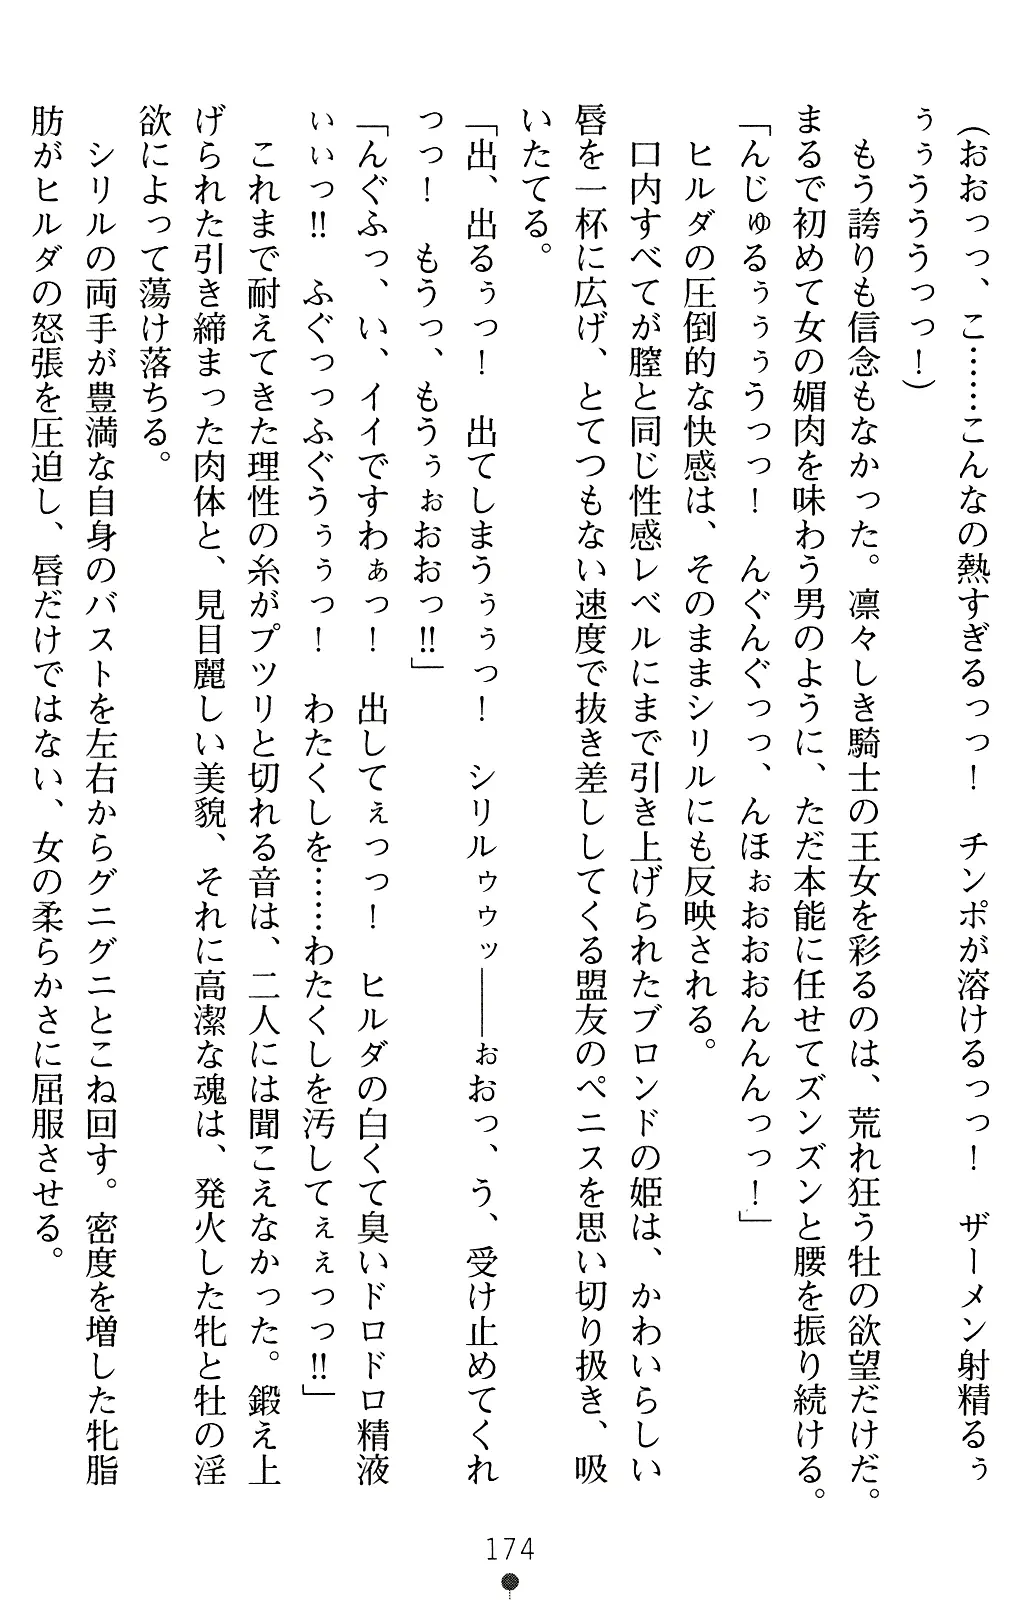 (おおっっ、こ……こんなの熱すぎるっっ！　チンポが溶けるっっ！　ザーメン射精るぅ
ぅぅうううっっ！)
　もう誇りも信念もなかった。凛々しき騎士の王女を彩るのは、荒れ狂う牡の欲望だけだ。
まるで初めて女の媚肉を味わう男のように、ただ本能に任せてズンズンと腰を振り続ける。
「んじゅるぅぅぅうっっ！　んぐんぐっっ、んほぉおおおんんんっっ！」
　ヒルダの圧倒的な快感は、そのままシリルにも反映される。
　口内すべてが膣と同じ性感レベルにまで引き上げられたブロンドの姫は、かわいらしい
唇を一杯に広げ、とてつもない速度で抜き差ししてくる盟友のペニスを思い切り扱き、吸
いたてる。
「出、出るぅっ！　出てしまうぅぅっ！　シリルゥゥッ――ぉおっ、う、受け止めてくれ
っっ！　もうっ、もうぅぉおおっ!!」
「んぐふっ、い、イイですわぁっ！　出してぇっっ！　ヒルダの白くて臭いドロドロ精液
ぃぃっ!!　ふぐっっふぐうぅぅっ！　わたくしを……わたくしを汚してぇぇっっ!!」
　これまで耐えてきた理性の糸がプツリと切れる音は、二人には聞こえなかった。鍛え上
げられた引き締まった肉体と、見目麗しい美貌、それに高潔な魂は、発火した牝と牡の淫
欲によって蕩け落ちる。
　シリルの両手が豊満な自身のバストを左右からグニグニとこね回す。密度を増した牝脂
肪がヒルダの怒張を圧迫し、唇だけではない、女の柔らかさに屈服させる。
174